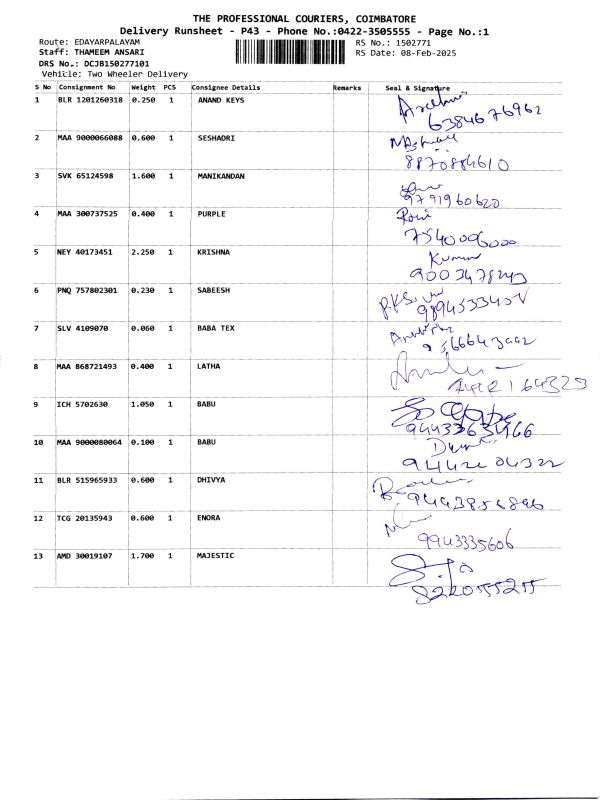 THE PROFESSIONAL COURIERS, COIMBATORE
Delivery Runsheet - P43 - Phone No.:0422-3505555 - Page No.:1
Route: EDAYARPALAYAM RS No.: 1502771
Staff: THAMEEM ANSARI RS Date: 08-Feb-2025
DRS No.: DCJB150277101
Vehicle: Two Wheeler Delivery
S No Consignment No Weight PCS Consignee Details Remarks Seal & Signature
1 BLR 1201260318 0.250 1 ANAND KEYS
6384676962
2 MAA 9000066088 0.600 1 SESHADRI
8870884610
3 SVK 65124598 1.600 1 MANIKANDAN
9791960620
4 MAA 300737525 0.400 1 PURPLE
7540006000
5 NEY 40173451 2.250 1 KRISHNA Kumar
6 PNQ 757802301 0.230 1 SABEESH
7 SLV 4109070 0.060 1 BABA TEX
8 MAA 868721493 0.400 1 LATHA
9 ICH 5702630 1.050 1 BABU
10 MAA 9000080064 0.100 1 BABU
11 BLR 515965933 0.600 1 DHIVYA
12 TCG 20135943 0.600 1 ENORA
9943335606
13 AMD 30019107 1.700 1 MAJESTIC